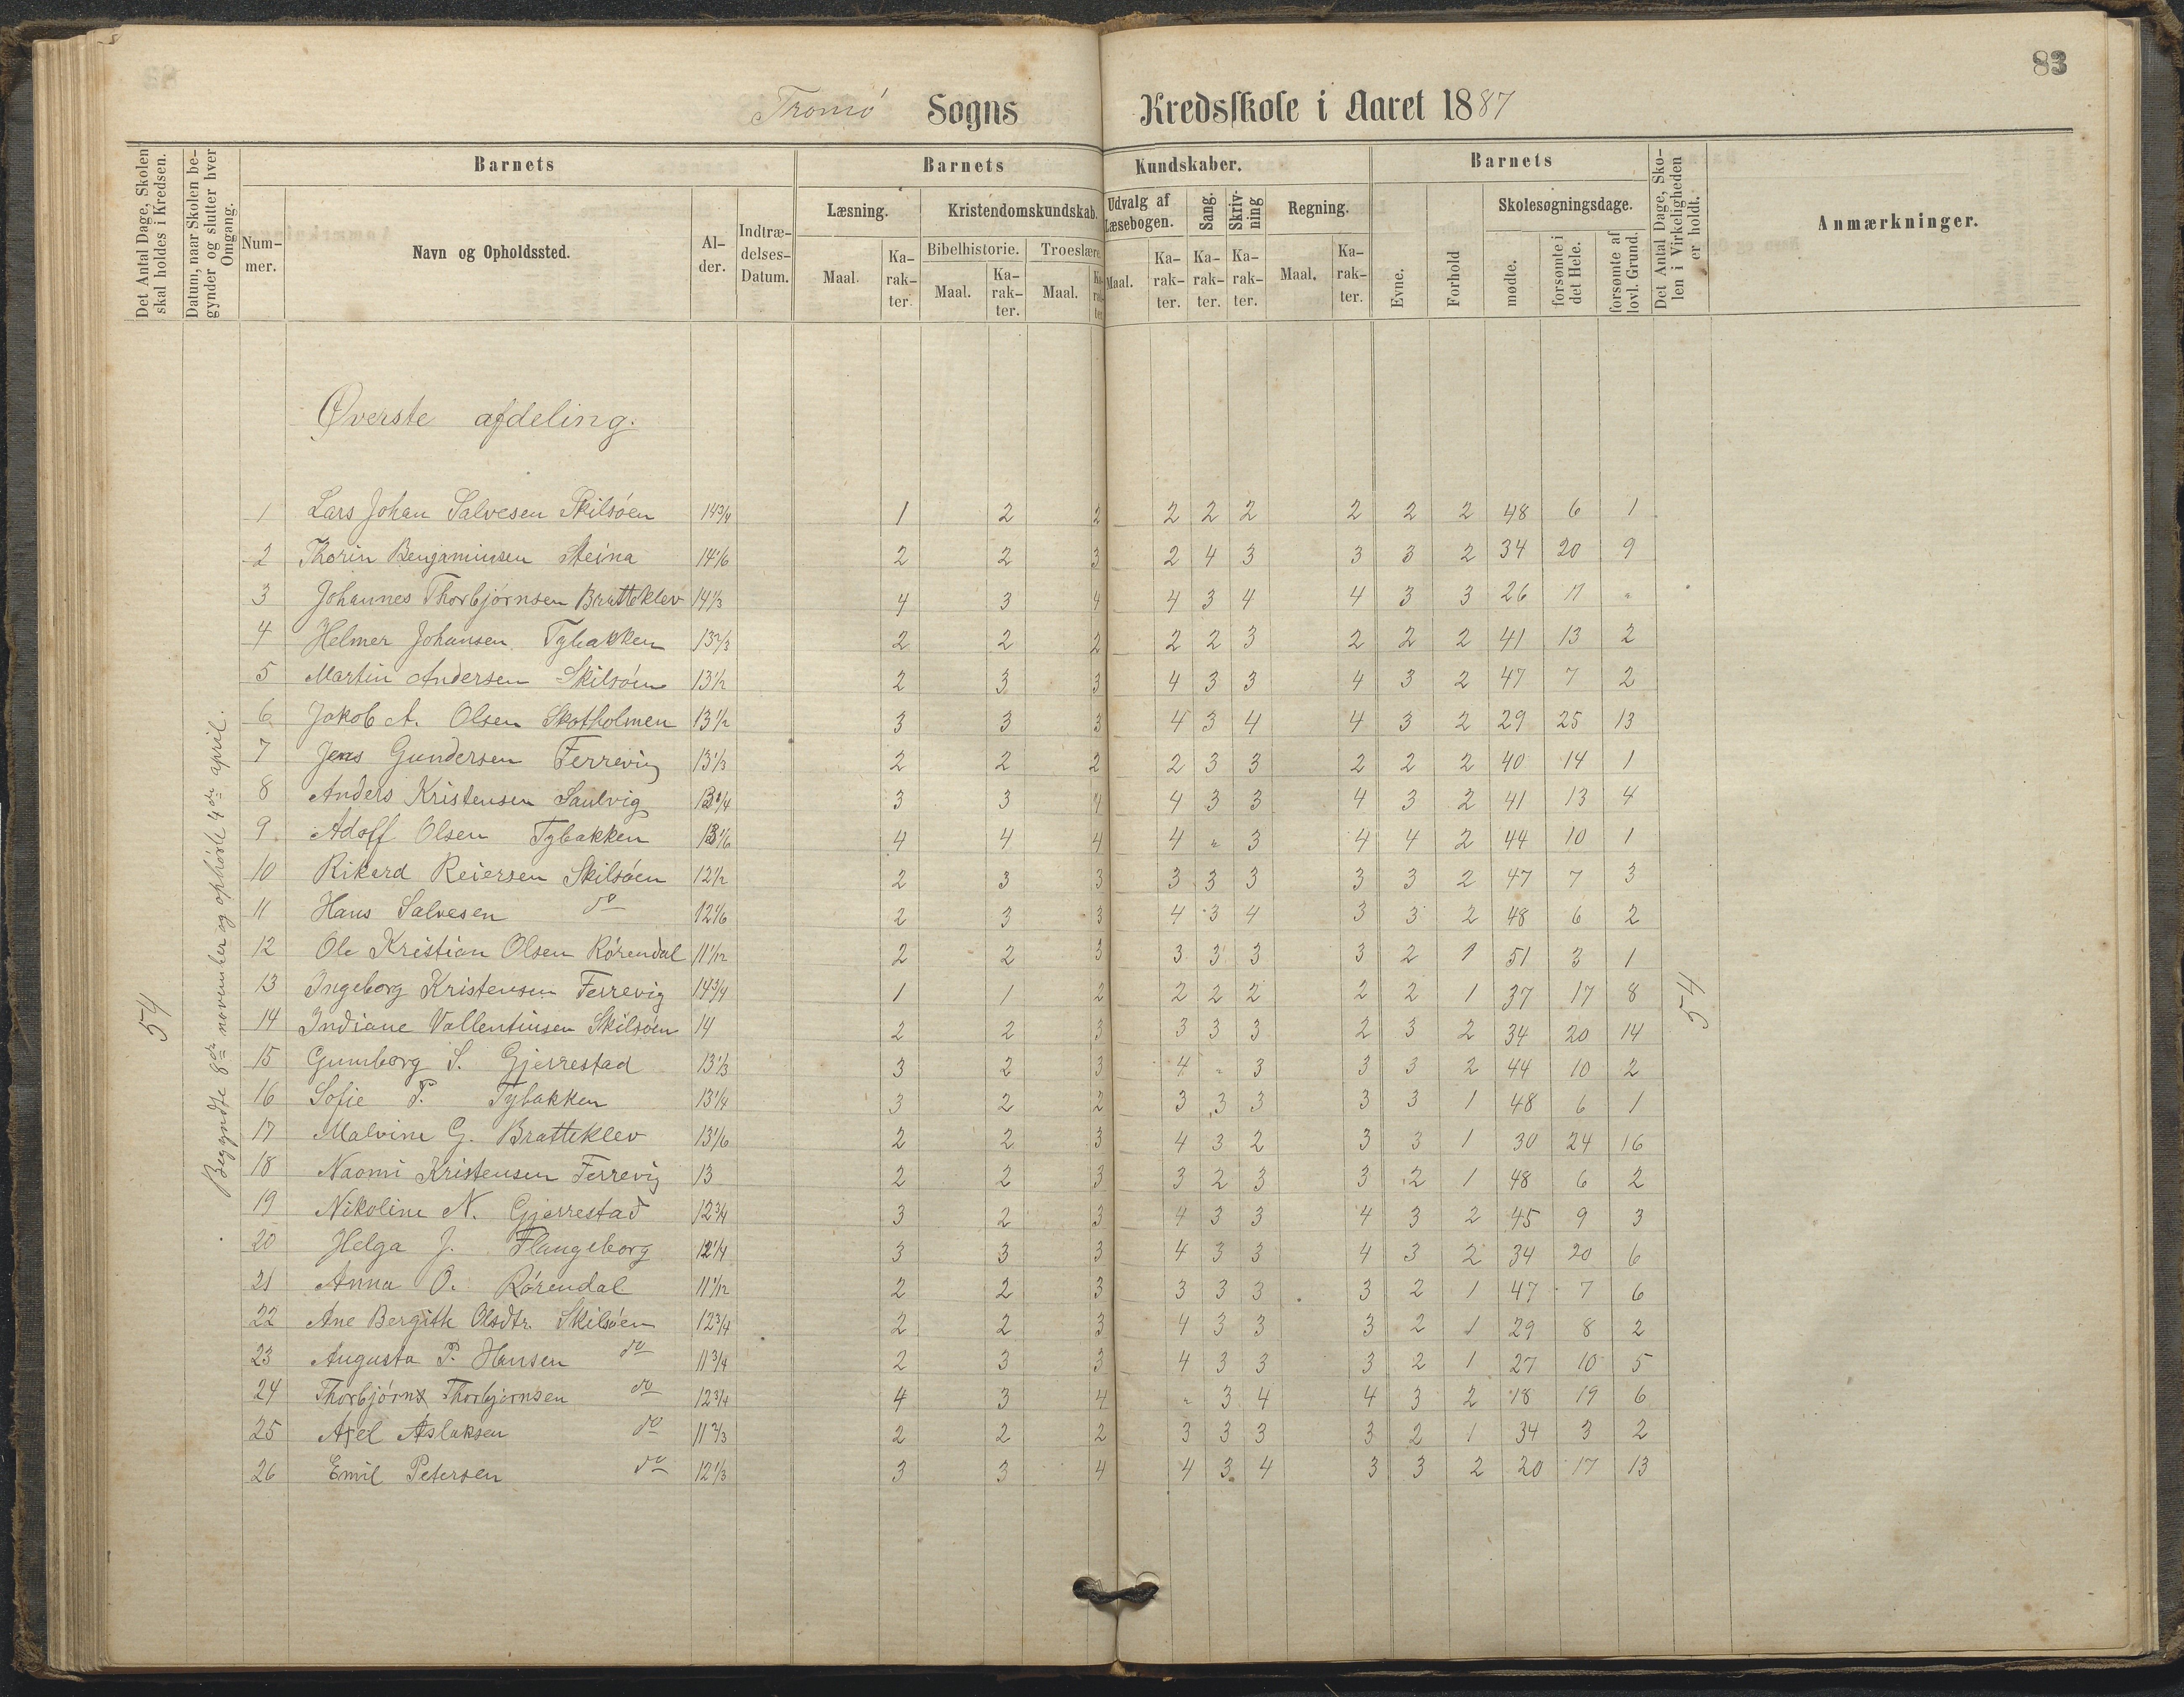 83
Tromø Sogns Kredsskole i Aaret 1887
Det Antal Dage, Skolen skal holdes i Kredsen.
Datum, naar Skolen begynder og slutter hver Omgang.
Barnets
Barnets Kundskaber.
Barnets
Det Antal Dage, Skolen i Virkeligheden er holdt.
Anmærkninger.
Nummer.
Navn og Opholdssted.
Alder.
Indtrædelses-Datum.
Læsning.
Kristendomskundskab.
Udvalg af Læsebogen.
Sang.
Skrivning
Regning.
Evne.
Forhold
Skolesøgningsdage.
Bibelhistorie.
Troeslære.
Maal.
Karakter.
Maal.
Karakter.
Maal.
Karakter.
Maal.
Karakter.
Karakter.
Karakter.
Maal.
Karakter.
mødte.
forsømte i det Hele.
forsømte af lovl. Grund.
Øverste afdeling.
54
Begyndte 8de november og ophørte 4de april.
54
1 Lars Johan Salvesen Skilsøen 14 3/4 1 2 2 2 2 2 2 2 2 48 6 1
2 Thorin Benjaminsen Steina 14 1/6 2 2 3 2 4 3 3 3 2 34 20 9
3 Johannes Thorbjørnsen Bratteklev 14 1/3 4 3 4 4 3 4 4 3 3 26 17 "
4 Helmer Johansen Tybakken 13 2/3 2 2 2 2 2 3 2 2 2 41 13 2
5 Martin Andersen Skilsøen 13 1/2 2 3 3 4 3 3 4 3 2 47 7 2
6 Jakob A. Olsen Skotholmen 13 1/2 3 3 3 4 3 4 4 3 2 29 25 13
7 Jens Gundersen Ferrevig 13 1/3 2 2 2 2 3 3 2 2 2 40 14 1
8 Anders Kristensen Saulvig 13 1/4 3 3 4 4 3 3 4 3 2 41 13 4
9 Adolf Olsen Tybakken 13 1/6 4 4 4 4 " 3 4 4 2 44 10 1
10 Rikard Reiersen Skilsøen 12 1/2 2 3 3 3 3 3 3 3 2 47 7 3
11 Hans Salvesen do 12 1/6 2 3 3 4 3 4 3 3 2 48 6 2
12 Ole Kristian Olsen Rørendal 11 1/12 2 2 3 3 3 3 3 2 1 51 3 1
13 Ingeborg Kristensen Ferrevig 14 3/4 1 1 2 2 2 2 2 2 1 37 17 8
14 Indiane Vallentinsen Skilsøen 14 2 2 3 3 3 3 2 3 2 34 20 14
15 Gumborg S. Gjerrestad 13 1/3 3 2 3 4 " 3 3 3 2 44 10 2
16 Sofie P. Tybakken 13 1/4 3 2 2 3 3 3 3 3 1 48 6 1
17 Malvine G. Bratteklev 13 1/6 2 2 3 4 3 2 3 3 1 30 24 16
18 Naomi Kristensen Ferrevig 13 2 2 3 3 2 3 3 2 1 48 6 2
19 Nikoline N. Gjerrestad 12 3/4 3 2 3 4 3 3 4 3 2 45 9 3
20 Helga J. Flangeborg 12 1/4 3 3 3 4 3 3 4 3 2 34 20 6
21 Anna O. Rørendal 11 1/12 2 2 3 3 3 3 3 2 1 47 7 6
22 Ane Bergith Olsdtr. Skilsøen 12 3/4 2 2 3 4 3 3 3 2 1 29 8 2
23 Augusta P. Hansen do 11 3/4 2 3 3 4 3 3 3 2 1 27 10 5
24 Thorbjørn Thorbjørnsen do 12 3/4 4 3 4 " 3 4 4 3 2 18 19 6
25 Axel Aslaksen do 11 2/3 2 2 2 3 3 3 3 2 1 34 3 2
26 Emil Petersen do 12 1/3 3 3 4 4 3 4 3 3 2 20 17 13